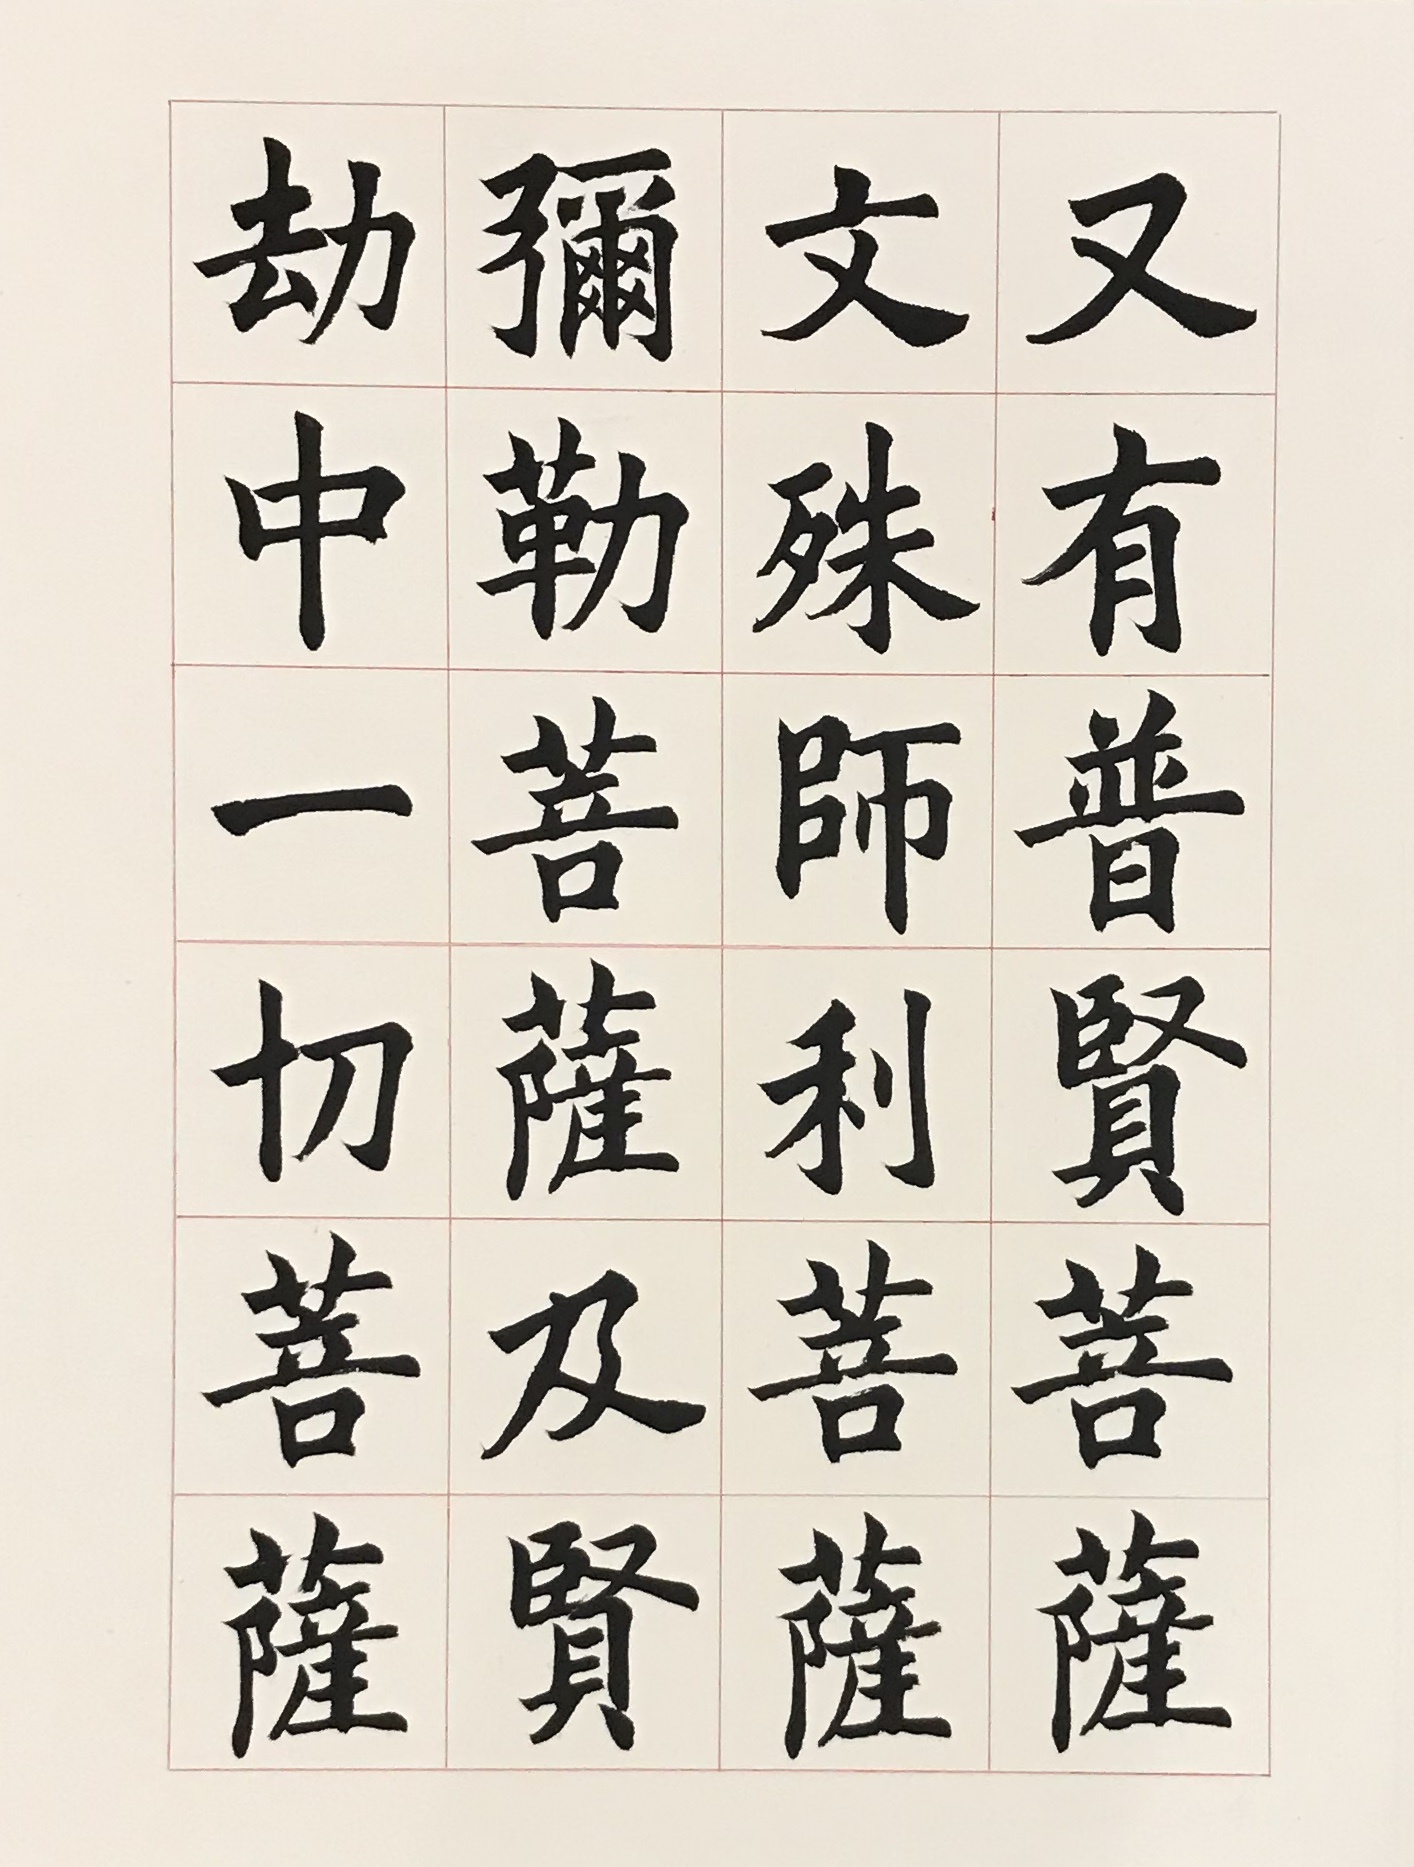 又有普賢菩薩
文殊師利菩薩
彌勒菩薩及賢
劫中一切菩薩